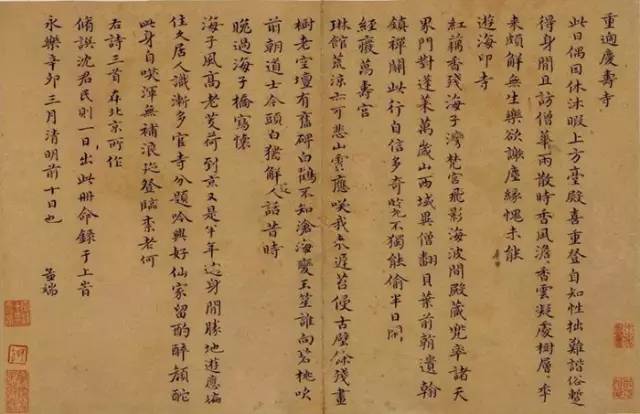 重過慶壽寺
此日偶因休沐暇上方臺殿喜重登自知性拙難諧俗暫
得身閒且訪僧華雨散時香風澹〻香雲凝處樹層〻平
来頗解無生樂欲謝塵緣愧未能
遊海印寺
紅藕香殘海子灣梵宮飛影海波間殿藏兜率諸天
界門對蓬萊萬歲山西域異僧翻貝葉前朝遺翰
鎮禪關此行自信多奇不獨能偷半日閒
經廢萬壽宮
琳館荒涼亦可悲山雲應咲我来遲苔侵古壁餘殘畫
樹老空壇有舊碑白鶴不知滄海變玉笙誰向碧桃吹
前朝道士今頭白猶解逢人話昔時
晚過海子橋寫懷
海子風高老芰荷到京又是半年過身閒勝地遊應徧
住久居人識漸多官寺分題吟興好仙家留酌醉顏酡
此身自咲渾無補浪跡登臨柰老何
右詩三首在北京所作
脩譔沈君民則一日出此冊命錄于上峕
永樂辛卯三月清明前十日也 孟端